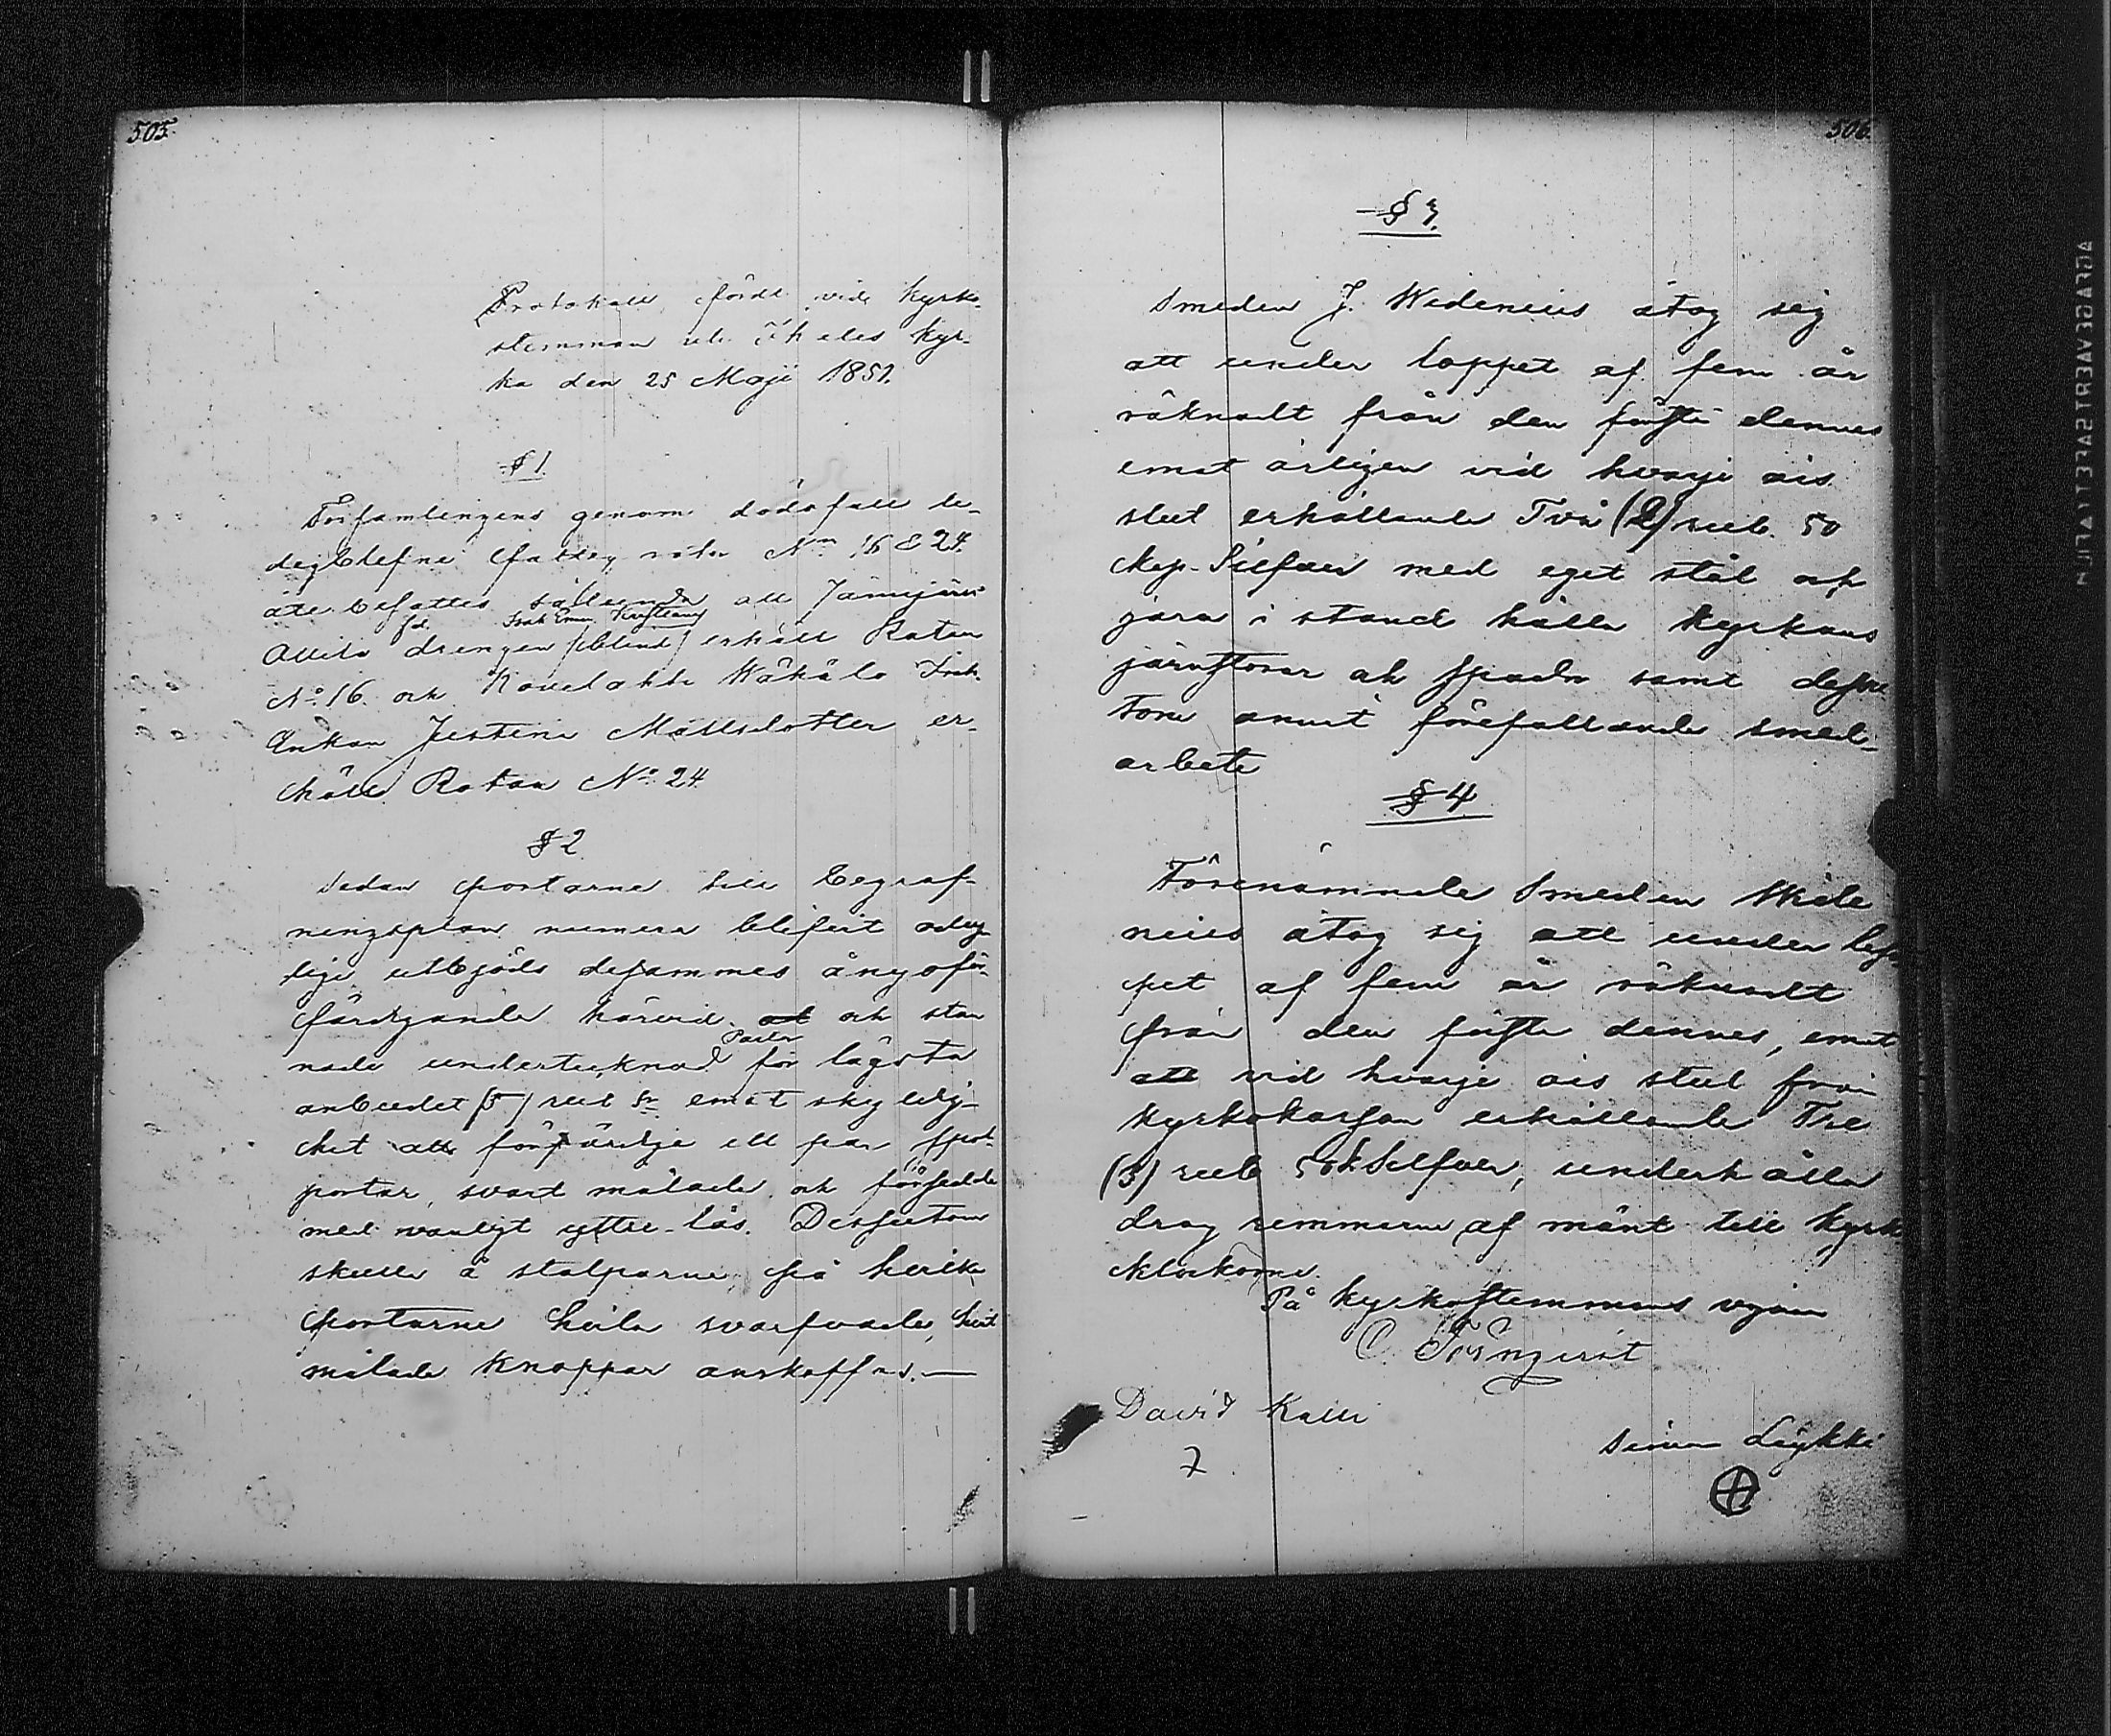 505.
Protokoll, fördt vid kyrko-
stemman uti kyr-
ka den 25 Maji 1851.
§ 1.
Församlingens genom dödsfall le-
digblefne fattig rotar N:o 16 & 24
åter besattes sålunda att
f.d. Enk.
drengen (blind) erhåll Rotan
N:o 16. och
Enkan Justina Mattsdotter er-
håll Rotan N:o 24
§ 2
Sedan portarne till begraf-
ningsplan numera blifvit odug-
lige utbjöds desammes ånyo för-
färdigande härvid och stan
Pastor
nade undertecknad för lägsta
anbudet (5) rub Sr emot skyldig-
het att förfärdiga ett par
portar, svart målade och försedde
med vanligt yttre-lås. Dessutom
skulle å stolparne på hvilka
portarne hvila svarfvade, hvit
målade knoppar anskaffas.—
506.
§ 3.
Smeden J. Widenius åtog sig
att under loppet af fem år
räknadt från den förste dennes
emot årligen vid hvarje års
slut erhållande Två (2) rub. 50
Kop. Silfver med eget stål och
järn i stånd hålla kyrkans
och spadar samt dessu
tom annat förefallande smed-
arbete
§ 4.
Förenämnde Smeden Wide
nius åtog sig att under lop-
pet af fem år räknadt
från den förste dennes, emot
att vid hvarje års slut från
kyrkokassan erhållande Tre
(3) rub 50 k Silfver, underhålla
drag remmarne af till kyrk
klockorne.
På kyrkostemmans vägnar
C.
David Kalli
Simon Löykki